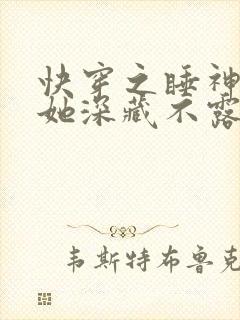 快穿之睡神
她深藏不露
韦斯特布鲁克